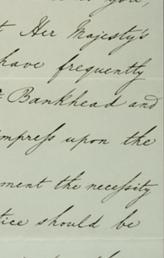 you,
Her Majesty's
have frequently
Bankhead and
impress upon the
ment the necessity
tice should be